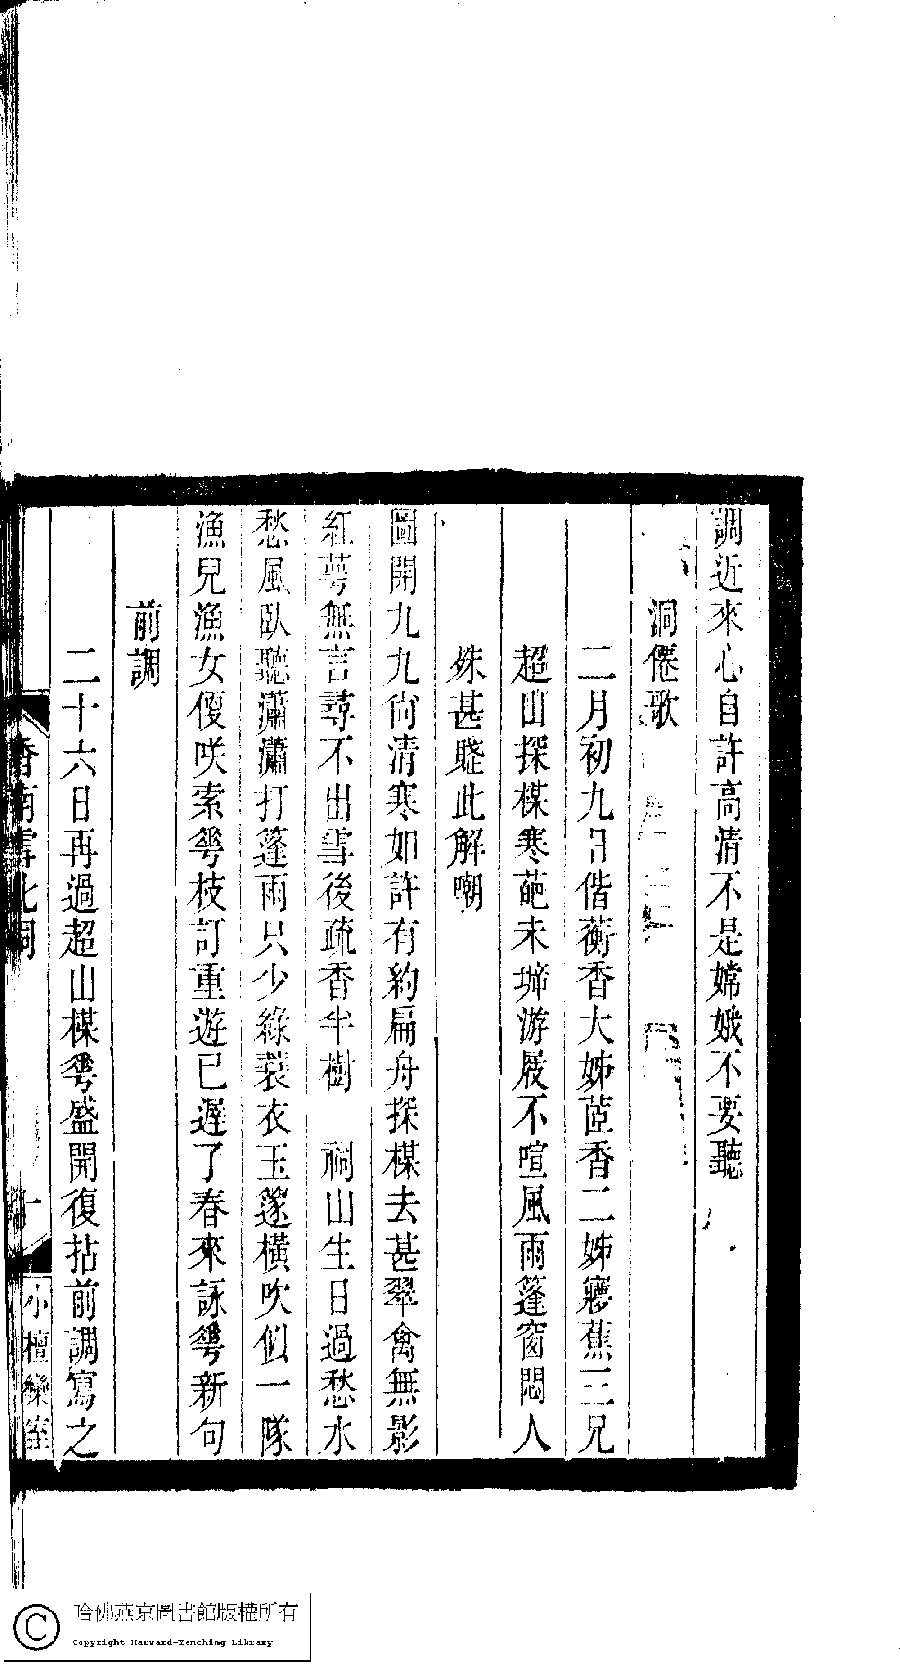 調近來心自許高清不是嫦娥不要聽
洞僊歌
二月初九日偕蘅香大姊茝香二姊㝱蕉三兄
超山探楳寒葩未坼游屐不喧風雨篷窗悶人
姝甚賸此解嘲
圖開九九尙清寒如許有約扁舟探楳去甚翠禽無影
紅萼無言尋不出雪後疏香半樹　祠山生日過愁水
愁風臥聽瀟瀟打篷雨只少綠蓑衣玉篴橫吹似一隊
漁兒漁女儍咲索䔢枝訂重遊已遲了春來詠䔢新句
前調
二十六日再過超山楳䔢盛開復拈前調寫之
香南雪北詞
十
小檀欒室
哈佛燕京圖書館版權所有
Copyright Harvard-Yenching Library